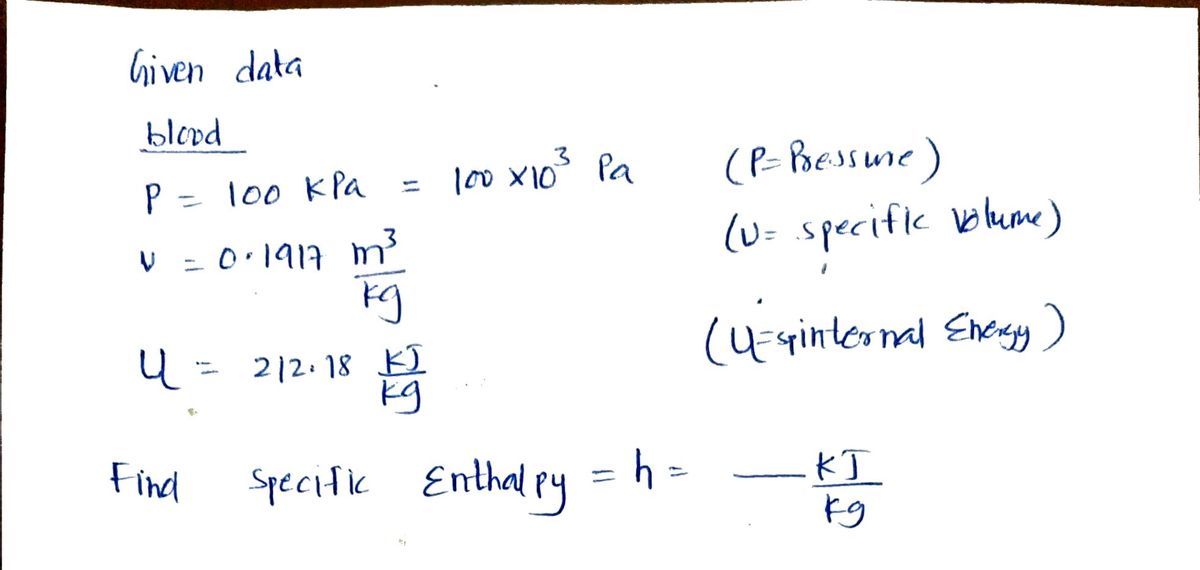 Given data
blood
P = 100 kPa = 100 × 10³ Pa (P= Pressure)
v = 0.1917 m³/kg (v= specific volume)
u = 212.18 kJ/kg (u= internal Energy)
Find specific Enthalpy = h = — kJ/kg